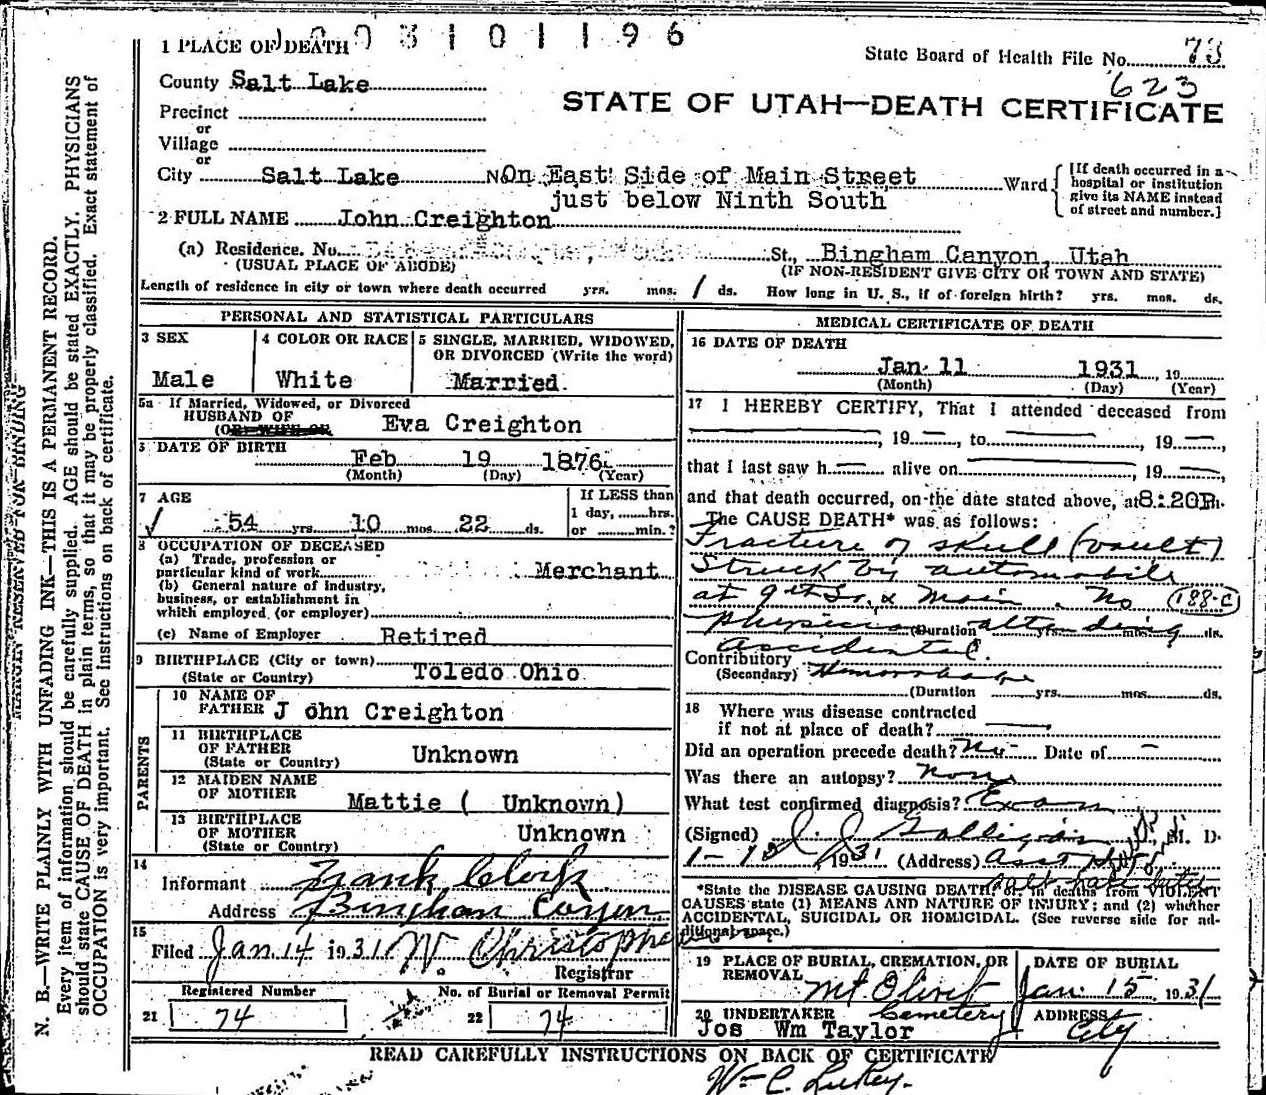 1003101196
1 PLACE OF DEATH
State Board of Health File No. 73
623
County Salt Lake
STATE OF UTAH—DEATH CERTIFICATE
Precinct
or
Village
or
City Salt Lake No. On East Side of Main Street
just below Ninth South
Ward
[If death occurred in a
hospital or institution
give its NAME instead
of street and number.]
2 FULL NAME John Creighton
(a) Residence. No. St., Bingham Canyon, Utah
(USUAL PLACE OF ABODE) (IF NON-RESIDENT GIVE CITY OR TOWN AND STATE)
Length of residence in city or town where death occurred yrs. mos. 1 ds. How long in U. S., if of foreign birth? yrs. mos. ds.
PERSONAL AND STATISTICAL PARTICULARS
3 SEX
Male
4 COLOR OR RACE
White
5 SINGLE, MARRIED, WIDOWED,
OR DIVORCED (Write the word)
Married
5a If Married, Widowed, or Divorced
HUSBAND OF
(OR WIFE OF Eva Creighton
6 DATE OF BIRTH
Feb 19 1876
(Month) (Day) (Year)
7 AGE
54 yrs. 10 mos. 22 ds.
If LESS than
1 day, hrs.
or min.?
8 OCCUPATION OF DECEASED
(a) Trade, profession or
particular kind of work Merchant
(b) General nature of industry,
business, or establishment in
which employed (or employer)
(c) Name of Employer Retired
9 BIRTHPLACE (City or town) Toledo Ohio
(State or Country)
PARENTS
10 NAME OF
FATHER J ohn Creighton
11 BIRTHPLACE
OF FATHER Unknown
(State or Country)
12 MAIDEN NAME
OF MOTHER Mattie ( Unknown)
13 BIRTHPLACE
OF MOTHER Unknown
(State or Country)
14
Informant Frank Clork
Address Bingham Conyon
15
Filed Jan. 14 1931 W. Christopherson
Registrar
Registered Number
21 74
No. of Burial or Removal Permit
22 74
MEDICAL CERTIFICATE OF DEATH
16 DATE OF DEATH
Jan. 11 1931, 19
(Month) (Day) (Year)
17 I HEREBY CERTIFY, That I attended deceased from
, 19 , to , 19
that I last saw h alive on , 19
and that death occurred, on the date stated above, at 8:20P m.
The CAUSE DEATH* was as follows:
Fracture of skull (vault)
Struck by automobile
at 9th So. & Main. No 188-C
physician attending
(Duration yrs. mos. ds.
accidental.
Contributory
(Secondary) Hemorrhage
(Duration yrs. mos. ds.
18 Where was disease contracted
if not at place of death?
Did an operation precede death? No Date of —
Was there an autopsy? none
What test confirmed diagnosis? Exam
(Signed) J. J. Galligan M. D.
1-12 1931 (Address) Asst
Salt Lake City
*State the DISEASE CAUSING DEATH, or in deaths from VIOLENT
CAUSES state (1) MEANS AND NATURE OF INJURY; and (2) whether
ACCIDENTAL, SUICIDAL OR HOMICIDAL. (See reverse side for ad-
ditional space.)
19 PLACE OF BURIAL, CREMATION, OR
REMOVAL Mt. Olivet
Cemetery
DATE OF BURIAL
Jan. 15 1931
20 UNDERTAKER
Jos Wm Taylor
ADDRESS
City
READ CAREFULLY INSTRUCTIONS ON BACK OF CERTIFICATE
Wm C.
MARGIN RESERVED FOR BINDING
N. B.—WRITE PLAINLY WITH UNFADING INK—THIS IS A PERMANENT RECORD.
Every item of information should be carefully supplied. AGE should be stated EXACTLY. PHYSICIANS
should state CAUSE OF DEATH in plain terms, so that it may be properly classified. Exact statement of
OCCUPATION is very important. See instructions on back of certificate.